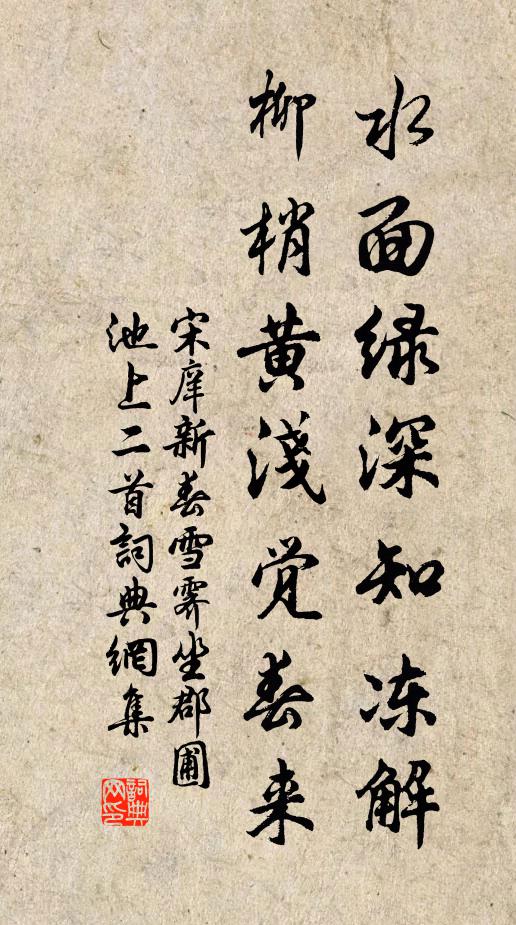 水面绿深知冻解
柳梢黄浅觉春来
宋庠新春雪霁坐郡圃
池上二首词典网集
詞典网印